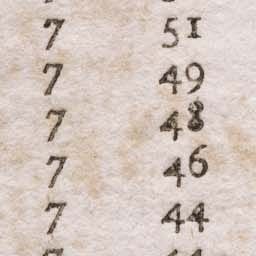 7 51
7 49
7 48
7 46
7 44